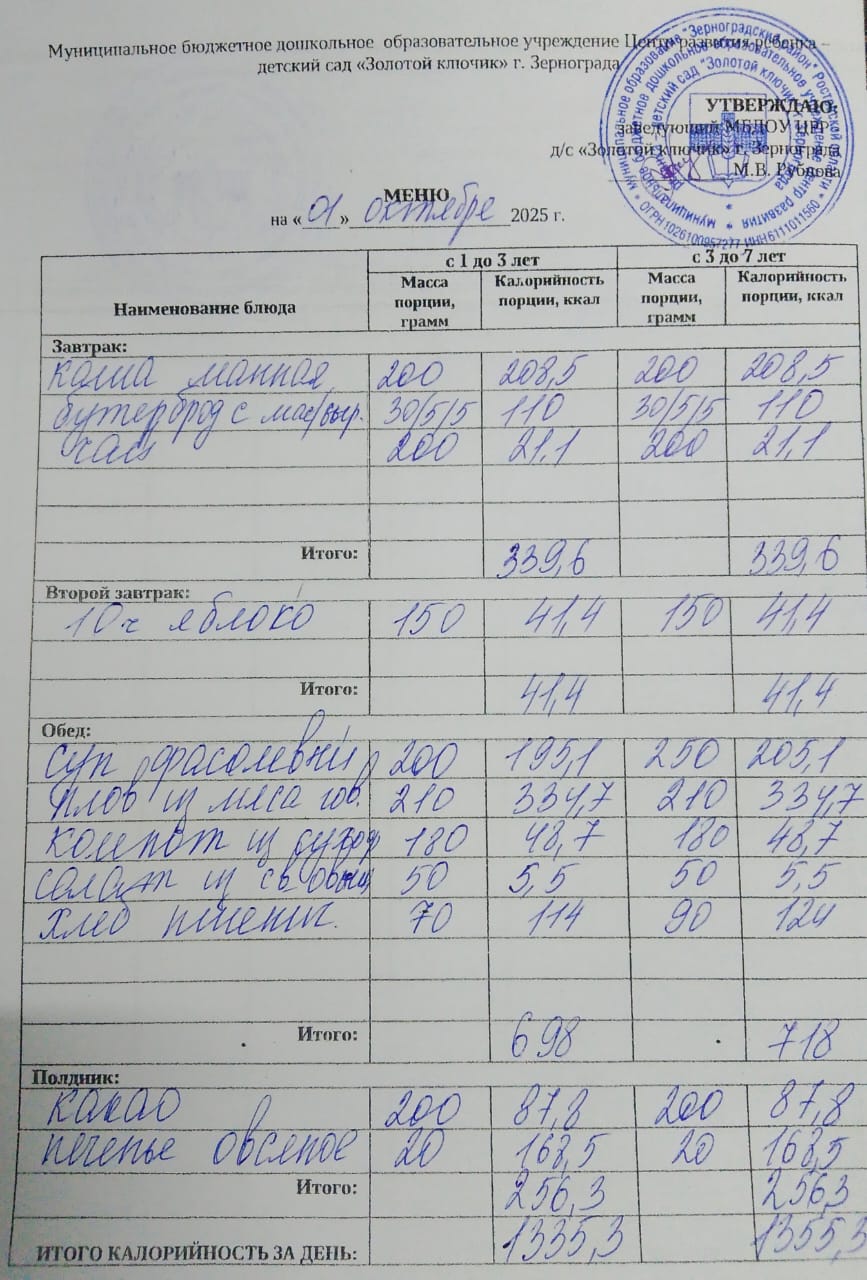 Муниципальное бюджетное дошкольное образовательное учреждение Центр развития ребенка –
детский сад «Золотой ключик» г. Зернограда
УТВЕРЖДАЮ:
заведующий МБДОУ ЦРР
д/с «Золотой ключик» г. Зернограда
М.В. Рублова
МЕНЮ
на «01» октября 2025 г.
Наименование блюда с 1 до 3 лет с 3 до 7 лет
Масса порции, грамм Калорийность порции, ккал Масса порции, грамм Калорийность порции, ккал
Завтрак:
каша манная 200 208,5 200 208,5
бутерброд с мас/сыр. 30/5/5 110 30/5/5 110
чай 200 21,1 200 21,1
Итого: 339,6 339,6
Второй завтрак:
10ч яблоко 150 41,4 150 41,4
Итого: 41,4 41,4
Обед:
суп фасолевый 200 195,1 250 205,1
плов из мяса гов. 210 334,7 210 334,7
компот из сухоф 180 48,7 180 48,7
салат из св овощ 50 5,5 50 5,5
хлеб пшенич. 70 114 90 124
Итого: 698 718
Полдник:
какао 200 87,8 200 87,8
печенье овсяное 20 168,5 20 168,5
Итого: 256,3 256,3
ИТОГО КАЛОРИЙНОСТЬ ЗА ДЕНЬ: 1335,3 1355,3